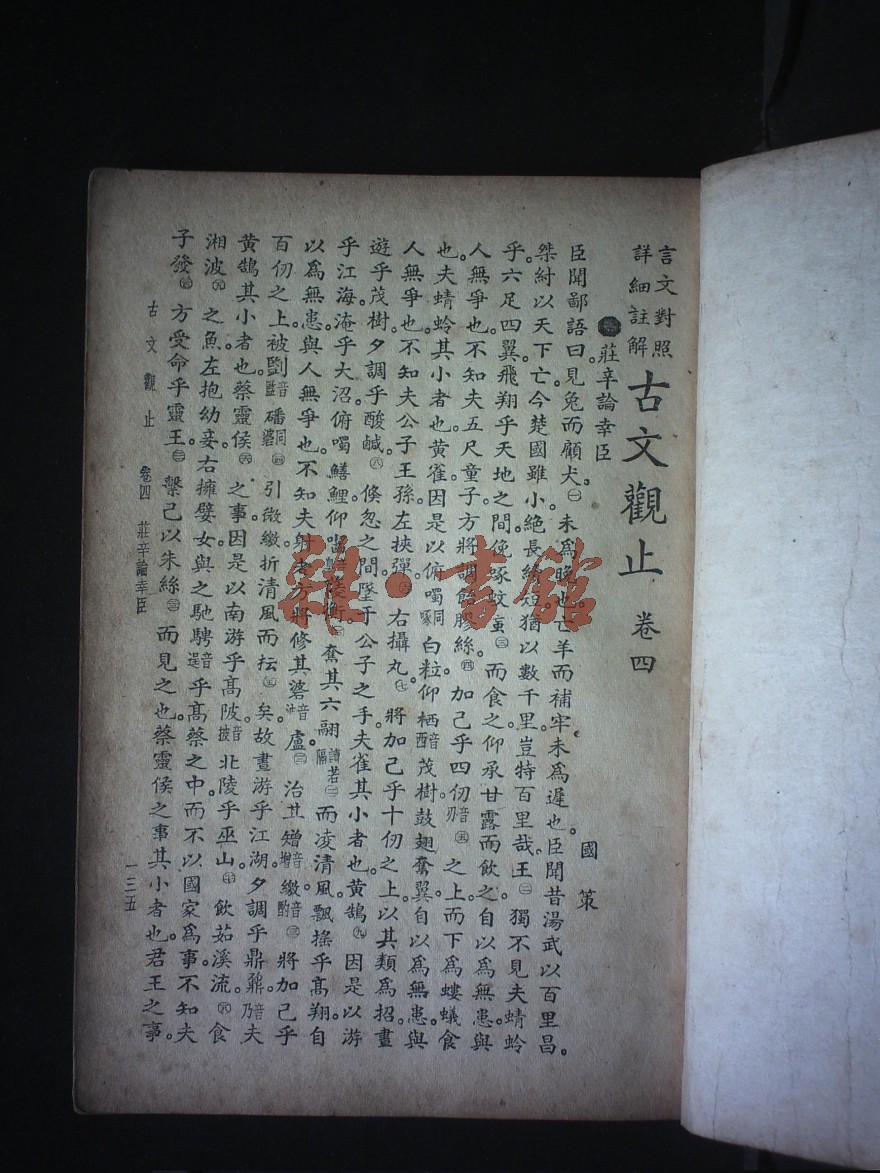 言文對照
詳細註解
古文觀止 卷四
莊辛論幸臣
國策
臣聞鄙語曰。見兔而顧犬。㊀未爲晚也。亡羊而補牢。未爲遲也。臣聞昔湯武以百里昌。
桀紂以天下亡。今楚國雖小。絕長續短。猶以數千里。豈特百里哉。王㊁獨不見夫蜻蛉
乎。六足四翼。飛翔乎天地之間。俛啄蚊䖟㊂而食之。仰承甘露而飲之。自以爲無患。與
人無爭也。不知夫五尺童子。方將調飴膠絲。㊃加己乎四仞音刃㊄之上。而下爲螻蟻食
也。夫蜻蛉其小者也。黃雀因是以俯噣同啄白粒。仰栖音西茂樹。鼓翅奮翼。自以爲無患。與
人無爭也。不知夫公子王孫。左挾彈。㊅右攝丸。㊆將加己乎十仞之上。以其類爲招。晝
遊乎茂樹。夕調乎酸鹹。㊇倏忽之間。墜于公子之手。夫雀其小者也。黃鵠㊈因是以游
乎江海。淹乎大沼。俯噣鱔鯉。仰嚙蔆衡。奮其六翮。讀若隔而凌清風。飄搖乎高翔。自
以爲無患。與人無爭也。不知夫射者。方將修其碆音波盧。治其矰音增繳。音酌將加己乎
百仞之上。被劉音監磻同碆引微繳。折清風而抎矣。故晝游乎江湖。夕調乎鼎鼐。音乃夫
黃鵠其小者也。蔡靈侯之事。因是以南游乎高陂。音披北陵乎巫山。飲茹溪流。食
湘波之魚。左抱幼妾。右擁嬖女。與之馳騁音逞乎高蔡之中。而不以國家爲事。不知夫
子發方受命乎靈王。繫己以朱絲而見之也。蔡靈侯之事其小者也。君王之事。
古文觀止 卷四 莊辛論幸臣 一三五
雜·書館